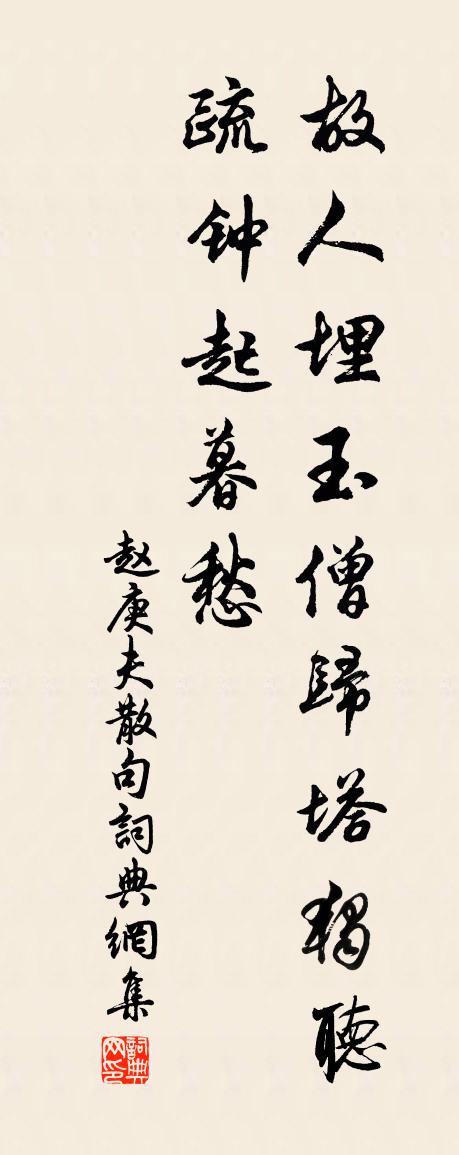 故人埋玉僧歸塔獨聽
疏钟起暮愁
赵庚夫散句詞典網集
詞典网印